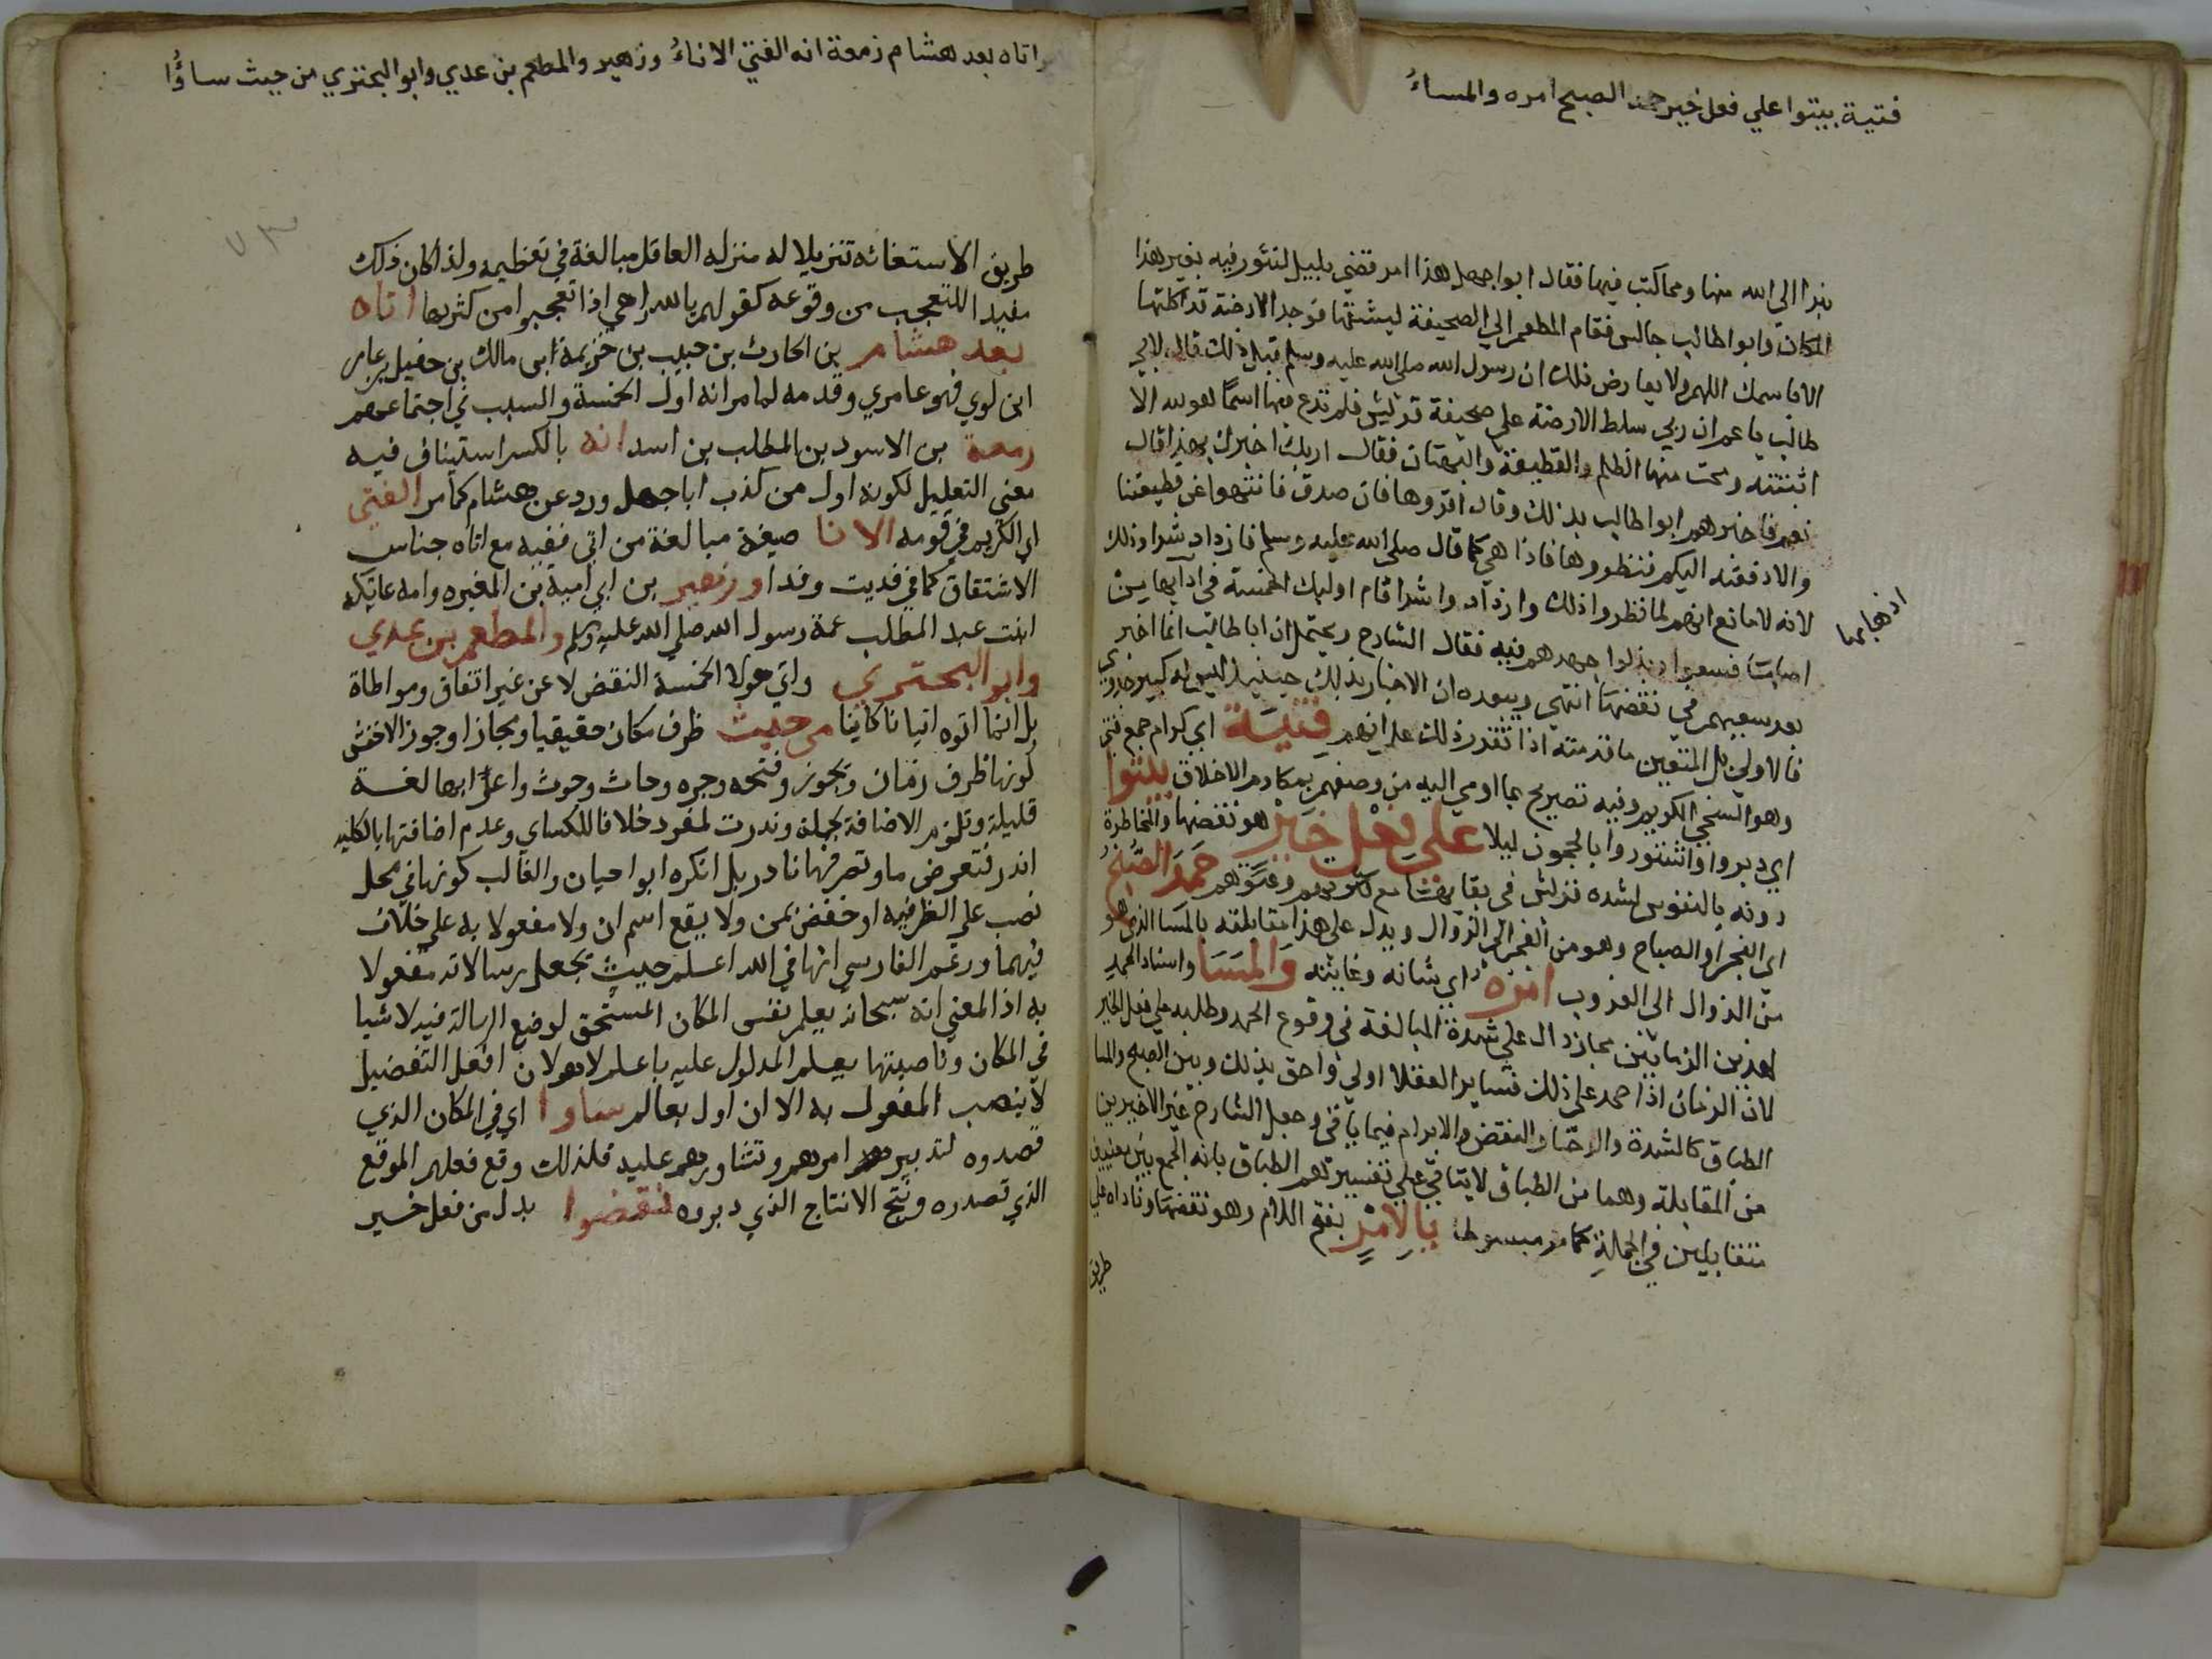 فتية بيتوا علي فعل خير حمد الصبح امره والمساءُ
نبرا الى الله منها ومما كتب فيها فقال ابوا جهل هذا امر قضي بليل لتشور فيه بغير هذا
المكان وابوا طالب جالس فقام المطعم الي الصحيفة ليشقها فوجد الارضة قد اكلتها
الا باسمك اللهم ولا يعارض ذلك ان رسول الله صلى الله عليه وسلم قبل ذلك قال لابي
طالب يا عم ان ربي سلط الارضة على صحيفة قريش فلم تدع فيها اسمًا هو لله الا
اثبتته ومحت منها الظلم والقطيعة والبهتان فقال اربك اخبرك بهذا قال
نعم فاخبرهم ابوا طالب بذلك وقال اقروها فان صدق فانتهوا عن قطيعتنا
والا دفعته اليكم فنظروها فاذا هي كما قال صلى الله عليه وسلم فازداد شرا وذلك
لانه لا مانع انهم لما نظروا ذلك وازدادوا شرا قام اوليك الخمسة في
اصابتا فسعوا وبذلوا جهدهم فيه فقال الشارح ويحتمل ان ابا طالب انما اخبر
بعد سعيهم في نقضها انتهي ويبعده ان الاخبار بذلك حينيذ ليس له كبير جدوي
فالاولي بل المتعين ما قدمته اذا تقرر ذلك علم انهم فِتْيَة اي كرام جمع فتى
وهو السخي الكريم وفيه تصريح بما اومي اليه من وصفهم بمكارم الاخلاق بيتوا
اي دبروا واشتوروا بالحجون ليلا على فعل خير هو نقضها والمخاطرة
دونه بالنفوس لشدة قريش في بقايها مع كثرتهم وعتوهم حمد الصبح
اي الفجر او الصباح وهو من الفجر الي الزوال ويدل على هذا مقابلته بالمسا الذي هو
من الزوال الى الغروب امره اي شانه وغايته والمسا واسناد الحمد
لهذين الزمانين مجاز دال على شدة المبالغة في وقوع الحمد وطلبه على فعل الخير
لان الزمان اذا حمد على ذلك فساير العقلا اولي واحق بذلك وبين الصبح والمسا
الطباق كالشدة والرخا والنقض والابرام فيما ياتي وجعل الشارح غير الاخيرين
من المقابلة وهما من الطباق لا يتاتي علي تفسيرهم الطباق بانه الجمع بين معنيين
متقابلين في الجملة كما مر مبسوطا يالامر بفتح اللام وهو نقضها وناداه على
طريق
اتاه بعد هشام زمعة انه الفتي الاتاءُ وزهير والمطعم بن عدي وابو البختري من حيث ساؤُا
٧٣
طريق الاستغاثه تنزيلا له منزله العاقل مبالغة في تعظيمه ولذا كان ذلك
مفيد اللتعجب من وقوعه كقولهم يا للدواهي اذا تعجبوا من كثرتها اتاه
بعد هشام بن الحارث بن حبيب بن خزيمة ابى مالك بن حفيل بن عامر
ابن لوي فهو عامري وقدمه لما مر انه اول الخمسة والسبب في اجتماعهم
زمعة بن الاسود بن المطلب بن اسد انه بالكسر استيناف فيه
معنى التعليل لكونه اول من كذب اباجهل ورد عن هشام كما مر الفتى
اي الكريم في قومه الاتا صيغة مبالغة من اتي ففيه مع اتاه جناس
الاشتقاق كما في فديت وفدا وزهير بن ابي امية بن المغيره وامه عاتكه
ابنت عبد المطلب عمة رسول الله صلى الله عليه وسلم والمطعم بن عدي
وابو البختري واتي هولا الخمسة النقض لا عن غير اتفاق ومواطاة
بل انما اتوه اتيانا كاينا من حيث ظرف مكان حقيقيا ومجازا وجوز الاخفش
كونها ظرف زمان ويجوز وفتحه وجره وحاث وحوث واعرابها لغة
قليلة وتلزم الاضافة لجملة وندرت لمفرد خلافا للكساي وعدم اضافتها بالكليه
اندر فتعوض ما وتصرفها نادر بل انكره ابوا حيان والغالب كونها في محل
نصب على الظرفيه او خفض بمن ولا يقع اسم ان ولا مفعولا به على خلاف
فيهما وزعم الفارسي انها في الله اعلم حيث يجعل رسالاته مفعولا
به اذ المعني انه سبحانه يعلم نفس المكان المستحق لوضع الرسالة فيه لا شيا
في المكان وناصبها يعلم المدلول عليه باعلم لا هو لان افعل التفضيل
لا ينصب المفعول به الا ان اول بعالم ساوا اي في المكان الذي
قصدوه لتدبيرهم امرهم وتشاورهم عليه فلذلك وقع فعلهم الموقع
الذي قصدره ونتج الانتاج الذي دبروه نقضوا بدل من فعل خير